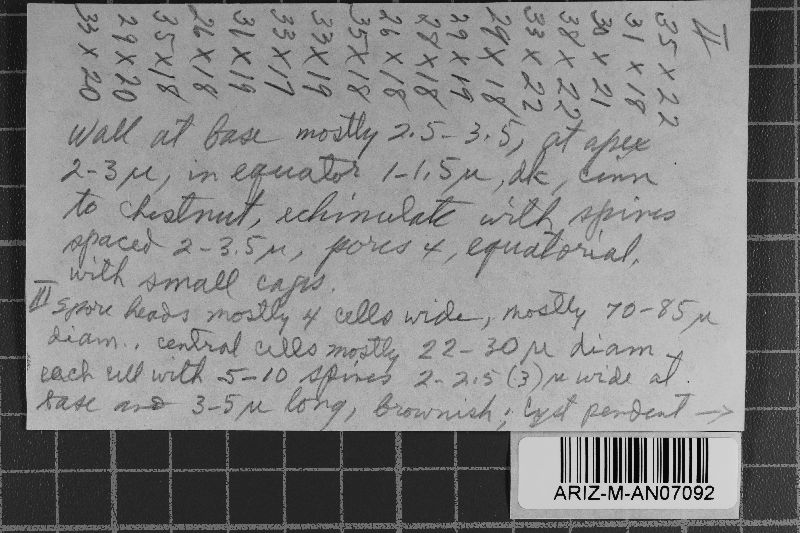 II
35 x 22
31 x 18
30 x 21
38 x 22
33 x 22
29 x 18
29 x 19
29 x 18
26 x 18
35 x 18
33 x 19
33 x 17
31 x 19
26 x 18
35 x 18
29 x 20
33 x 20
Wall at base mostly 2.5-3.5, at apex
2-3 μ, in equator 1-1.5 μ, dk, cinn
to chestnut, echinulate with spines
spaced 2-3.5 μ, pores 4, equatorial,
with small caps.
III Spore heads mostly 4 cells wide, mostly 70-85 μ
diam., central cells mostly 22-30 μ diam
each cell with 5-10 spines 2-2.5 (3) μ wide at
base and 3-5 μ long, brownish; cyst pendent →
ARIZ-M-AN07092